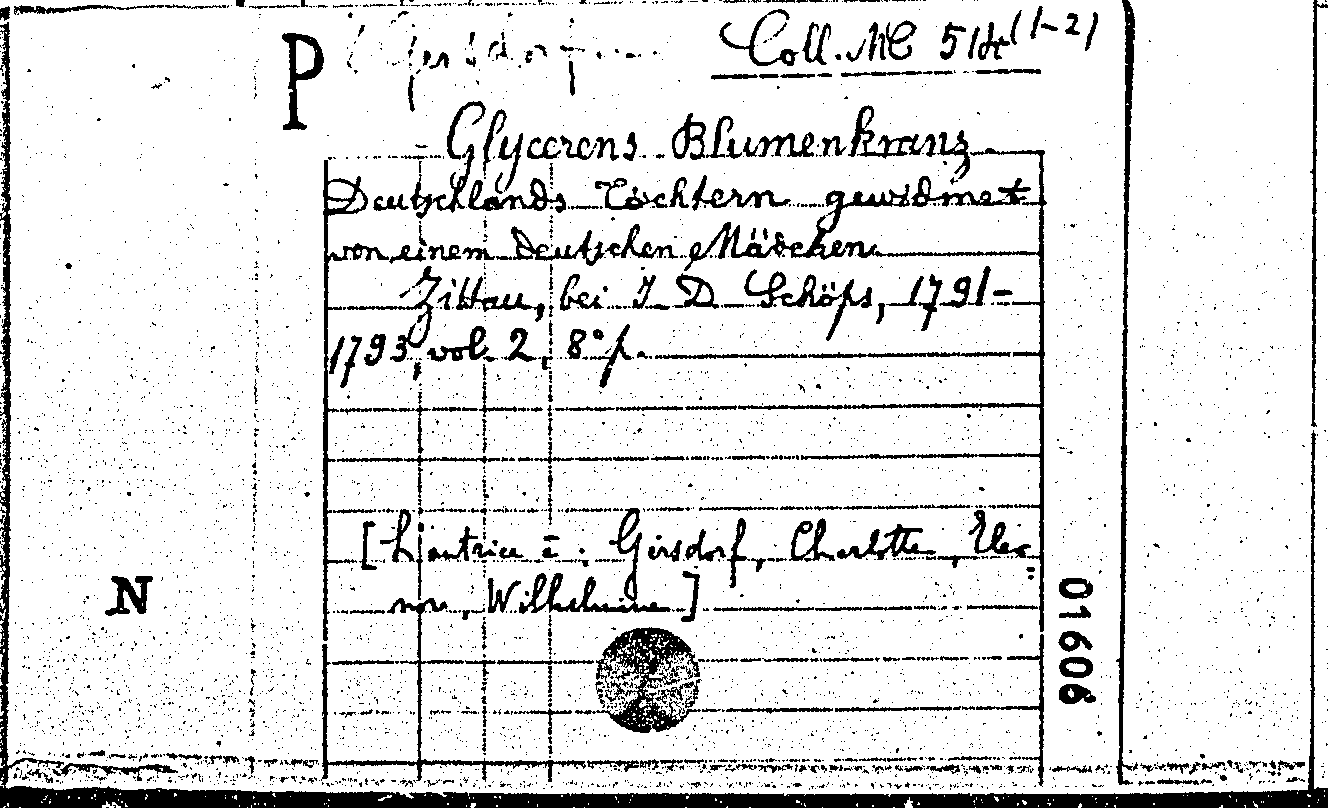 P Gersdorf Coll. MC 514 (1-2)
Glycerens Blumenkranz
Deutschlands Töchtern gewidmet
von einem deutschen Mädchen.
Zittau, bei J. D. Schöps, 1791-
1793, vol. 2, 8° p.
[L'autrice è: Gersdorf, Charlotte, Eleo=
nore, Wilhelmine]
N
01606